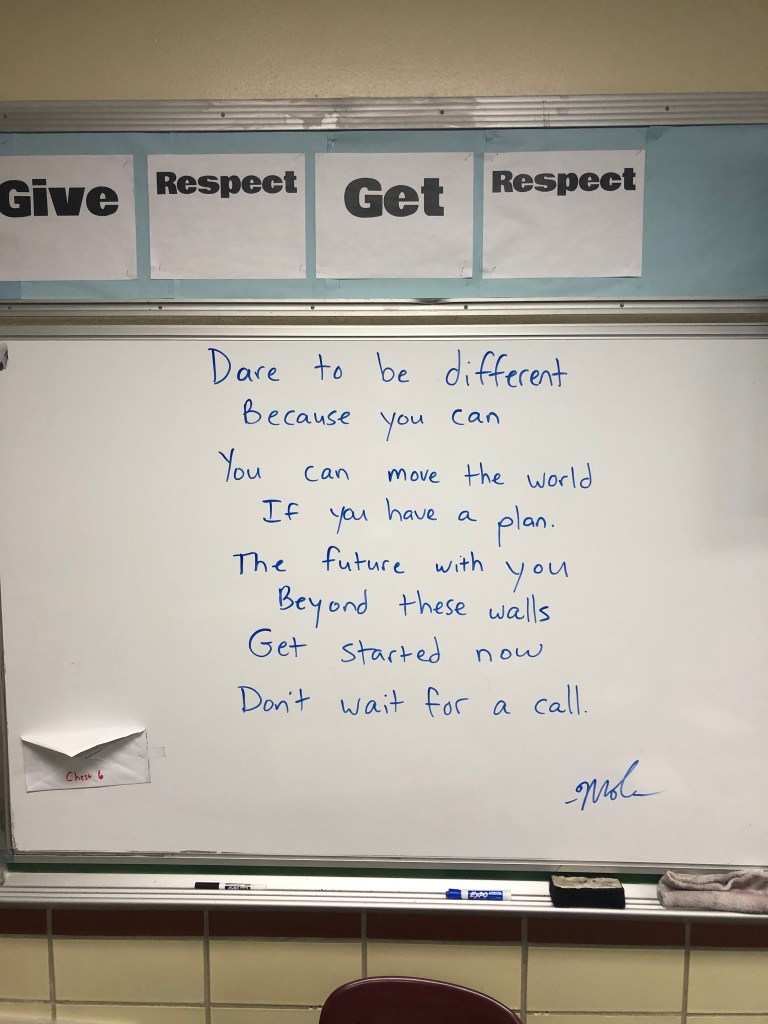 Give Respect Get Respect
Dare to be different
Because you can
You can move the world
If you have a plan.
The future with you
Beyond these walls
Get started now
Don't wait for a call.
Chest 6
EXPO